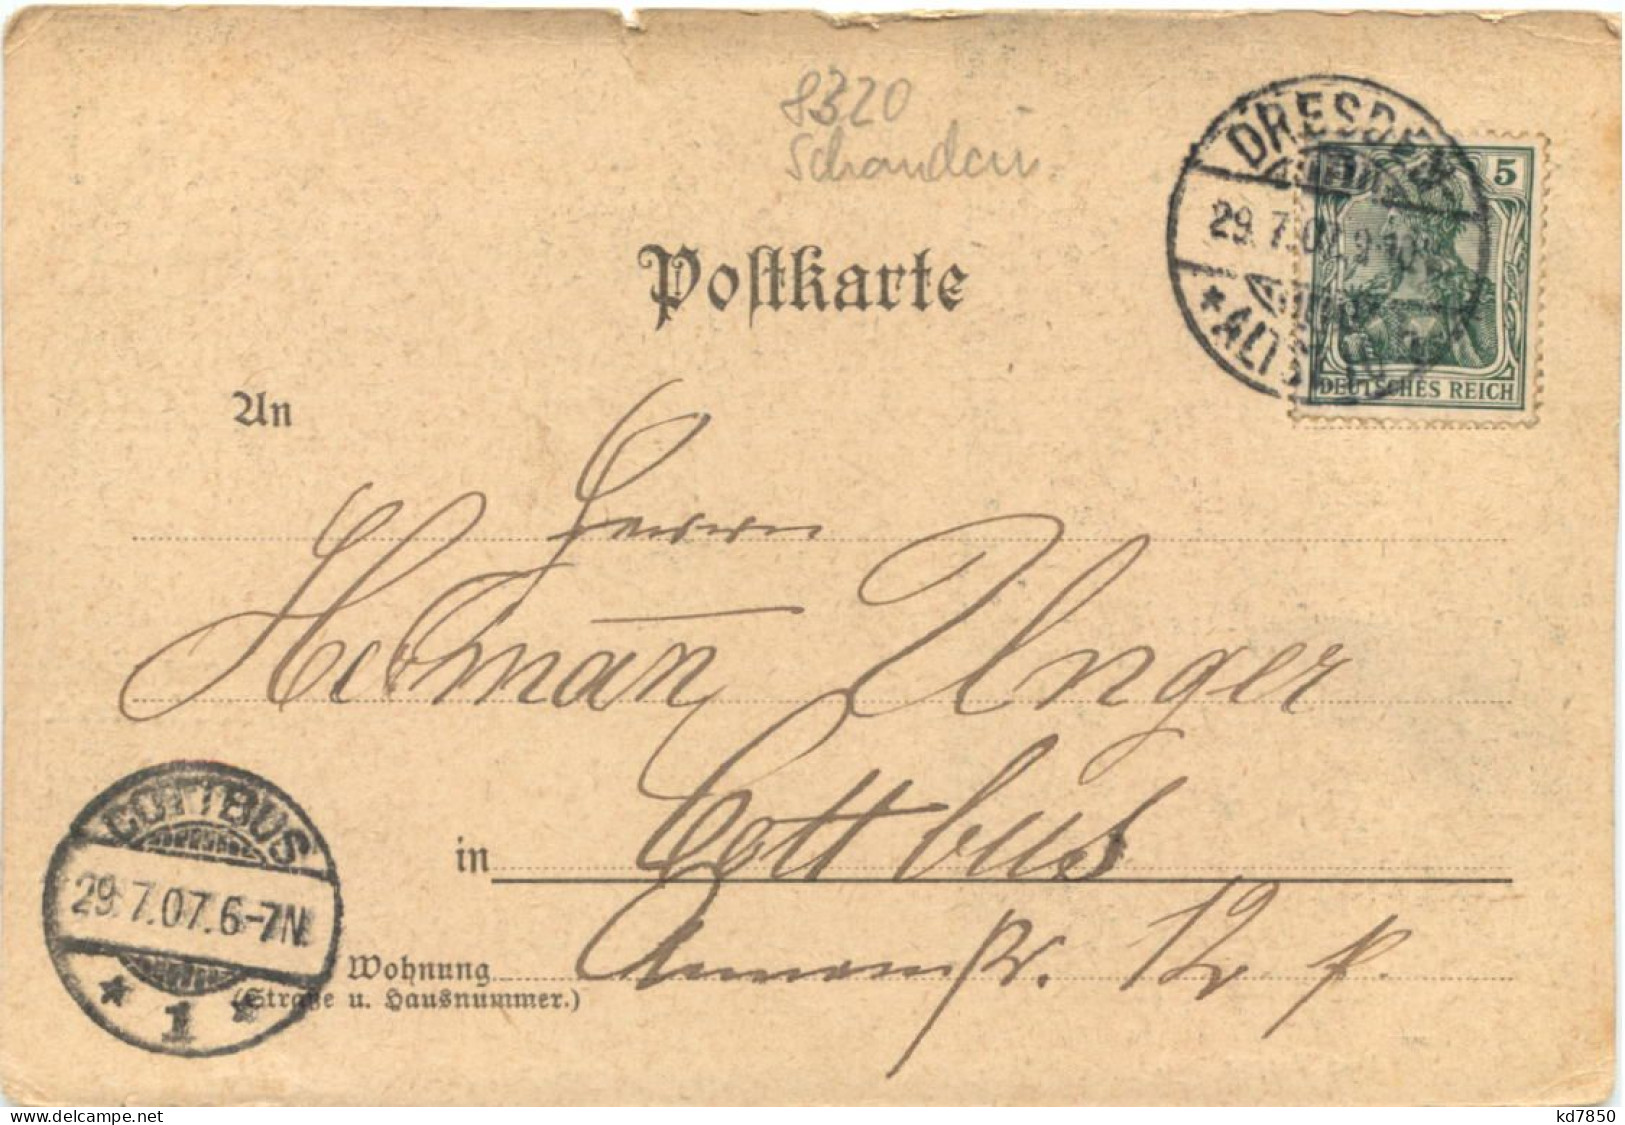 8320
Schandau
DRESDEN
29.7.07. 9-10
* ALTST. 
5
DEUTSCHES REICH
Postkarte
An
Herrn
Herman̄ Unger
in Cottbus
Wohnung 12 p.
(Straße u. Hausnummer.)
COTTBUS
29.7.07.6-7N.
* 1 *
kd7850